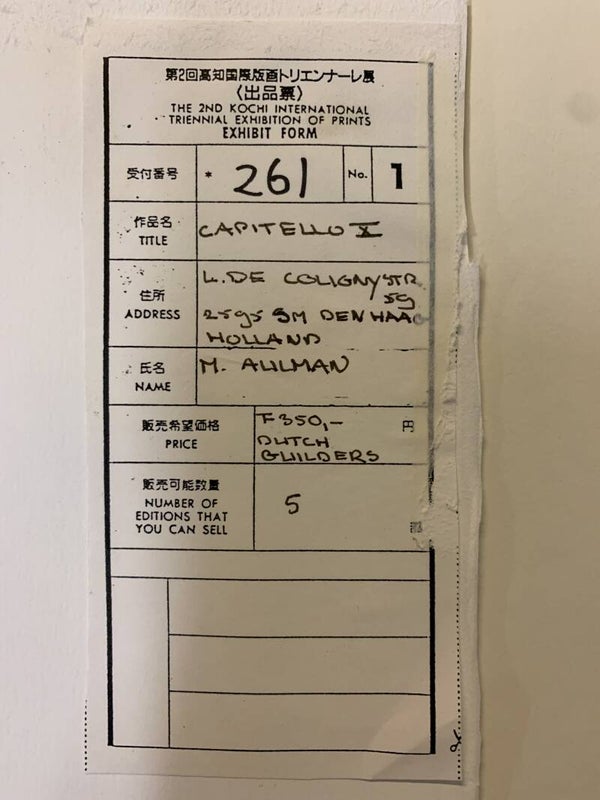 第2回高知国際版画トリエンナーレ展
〈出品票〉
THE 2ND KOCHI INTERNATIONAL
TRIENNIAL EXHIBITION OF PRINTS
EXHIBIT FORM
受付番号 * 261 No. 1
作品名 TITLE CAPITELLO X
住所 ADDRESS L. DE COLIGNYSTR
59
HOLLAND
氏名 NAME M.
販売希望価格 PRICE F350,- 円
DUTCH
GUILDERS
販売可能数量
NUMBER OF
EDITIONS THAT
YOU CAN SELL
5